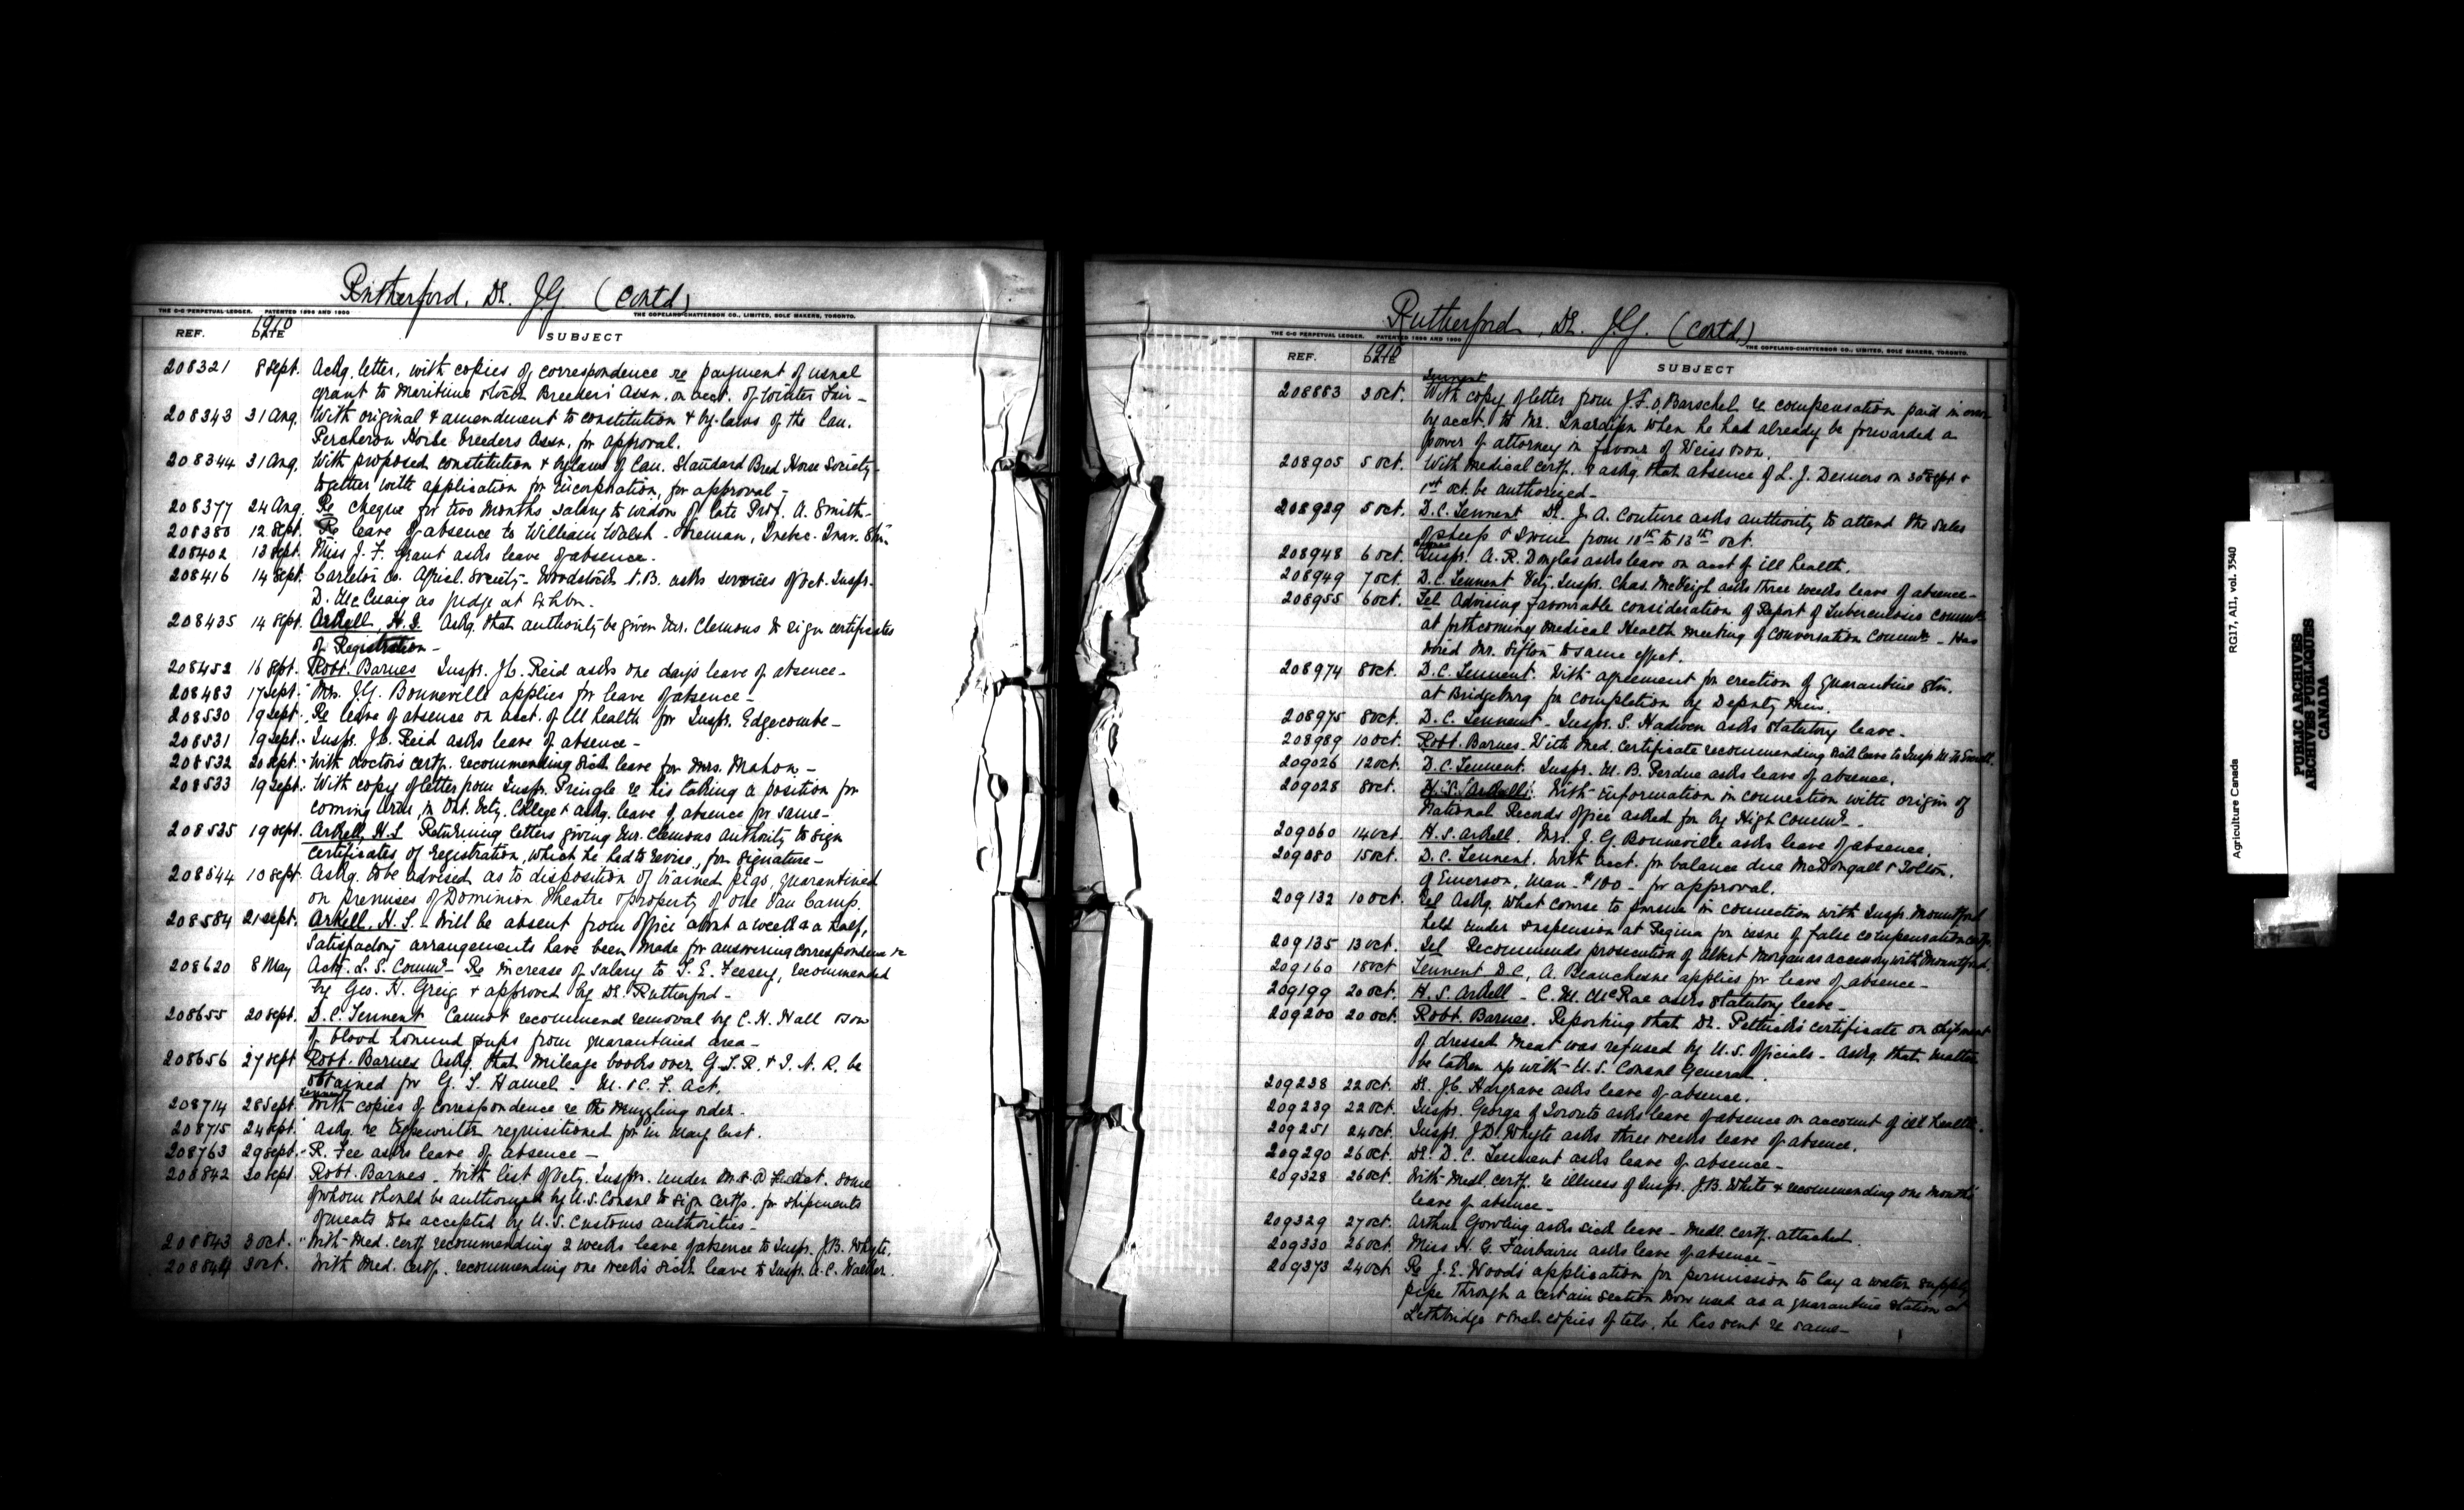 Rutherford, Dr. J.G. (Contd)
THE C-C PERPETUAL LEDGER. PATENTED 1896 AND 1900
THE COPELAND-CHATTERSON CO., LIMITED, SOLE MAKERS, TORONTO.
REF. 1910 DATE SUBJECT
208321 8 Sept. Ackg. letter, with copies of correspondence re payment of usual
grant to Maritime Stock Breeders' Assn. on acct. of Winter Fair -
208343 31 Aug. With original & amendment to constitution & by-laws of the Can.
Percheron Horse Breeders Assn. for approval.
208344 31 Aug. With proposed constitution & bylaws of Can. Standard Bred Horse Society
together with application for incorporation, for approval -
208377 24 Aug. Re cheque for two months salary to widow of late Prof. A. Smith -
208380 12 Sept. Re leave of absence to William Walsh - Foreman, Quebec. Quar. Stn.
208402 13 Sept. Miss J. F. Grant asks leave of absence.
208416 14 Sept. Carleton Co. Agricl. Society - Woodstock N.B. asks services of Vet. Inspr.
D. McCuaig as judge at Exhbn.
208435 14 Sept. Arkell, H.S. Askg. that authority be given Mr. Clemons to sign certificates
of Registration -
208452 16 Sept. Robt. Barnes Inspr. J.C. Reid asks one day's leave of absence -
208483 17 Sept. Mrs. J.G. Bonneville applies for leave of absence -
208530 19 Sept. Re leave of absence on acct. of ill health for Inspr. Edgecombe -
208531 19 Sept. Inspr. J.C. Reid asks leave of absence -
208532 20 Sept. With doctor's certf. recommending sick leave for Mrs. Mahon -
208533 19 Sept. With copy of letter from Inspr. Pringle re his taking a position for
coming term in Ont. Vety. College & askg. leave of absence for same -
208535 19 Sept. Arkell, H.S. Returning letters giving Mr. Clemons authority to sign
Certificates of Registration, which he had to revise, for signature -
208544 10 Sept. Askg. to be advised as to disposition of trained pigs, quarantined
on premises of Dominion Theatre & property of one Van Camp.
208584 21 Sept. Arkell, H.S. - Will be absent from office about a week & a half,
satisfactory arrangements have been made for answering correspondence &c
208620 8 May Actg. L. S. Commr. - Re increase of salary to T. E. Feesey, recommended
by Geo. H. Greig & approved by Dr. Rutherford -
208655 20 Sept. D.C. Tennent Cannot recommend removal by C. H. Hall & son
of blood hound pups from quarantined area -
208656 27 Sept Robt. Barnes Askg. that mileage books over G.T.R. & I.N.R. be
obtained for G. T. Hamel - M. & C. F. Act.
Tennent
208714 28 Sept. With copies of correspondence re the muzzling order.
208715 24 Sept. Askg. re typewriter requisitioned for in May last.
208763 29 Sept. R. Fee asks leave of absence -
208842 30 Sept. Robt. Barnes. With list of Vety. Insprs. under M. & C. F. Act. some
of whom should be authorized by U.S. Consul to sign certfs. for shipments
of meats to be accepted by U.S. Customs authorities -
208843 3 Oct. With Med. certf. recommending 2 weeks leave of absence to Inspr. J.B. Whyte.
208844 3 Oct. With Med. certf. recommending one week's sick leave to Inspr. A.C. Walker.
Rutherford, Dr. J.G. (Contd)
THE C-C PERPETUAL LEDGER. PATENTED 1896 AND 1900
THE COPELAND-CHATTERSON CO., LIMITED, SOLE MAKERS, TORONTO.
REF. 1910 DATE SUBJECT
Tennent
208883 3 Oct. With copy of letter from J.F.O. Barschel re compensation paid in
by acct. to Mr. when he had already be forwarded a
power of attorney in favour of Weiss & son.
208905 5 Oct. With medical certf. & askg. that absence of L. J. Demers on 30th Sept &
1st Oct. be authorized -
208929 5 Oct. D.C. Tennent Dr. J. A. Couture asks authority to attend the sales
of sheep & swine from 10th to 13th Oct.
208948 6 Oct. Inspr. A. R. Douglas asks leave on acct of ill health.
208949 7 Oct. D.C. Tennent Vety. Inspr. Chas. McVeigh asks three weeks leave of absence -
208955 6 Oct. Tel Advising favourable consideration of Report of Tuberculosis Commtn.
at forthcoming Medical Health meeting of Conversation Commtn. - Has
wired Mr. Sifton to same effect.
208974 8 Oct. D.C. Tennent. With agreement for erection of Quarantine Stn.
at Bridgeburg for completion by Deputy Min.
208975 8 Oct. D.C. Tennent - Inspr. S. Hadwen asks statutory leave -
208989 10 Oct. Robt. Barnes. With Med. certificate recommending sick leave to Inspr.
209026 12 Oct. D.C. Tennent. Inspr. M. B. Perdue asks leave of absence.
209028 8 Oct. H.S. Arkell. With information in connection with origin of
National Records office asked for by High Commr. -
209060 14 Oct. H.S. Arkell. Mrs. J. G. Bonneville asks leave of absence.
209080 15 Oct. D.C. Tennent. With acct. for balance due McDougall & Tolton,
of Emerson, Man - $100 - for approval.
209132 10 Oct. Tel Askg. what course to pursue in connection with Inspr. Mountford
held under suspension at Regina for issue of false compensation certf.
209135 13 Oct. Tel Recommends prosecution of Albert Morgan as accessory with Mountford.
209160 18 Oct Tennent D.C. A. Beauchesne applies for leave of absence -
209199 20 Oct. H.S. Arkell - C. M. McRae asks statutory leave -
209200 20 Oct. Robt. Barnes. Reporting that Dr. Pettick's certificate on shipment
of dressed meat was refused by U.S. officials - Askg. that matter
be taken up with U.S. Consul General.
209238 22 Oct. Dr. J.C. Hargrave asks leave of absence.
209239 22 Oct. Inspr. George of Toronto asks leave of absence on account of ill health.
209251 24 Oct. Inspr. J.D. Whyte asks three weeks leave of absence.
209290 26 Oct. Dr. D.C. Tennent asks leave of absence -
209328 26 Oct. With Medl. certf. re illness of Inspr. J.B. White & recommending one month's
leave of absence -
209329 27 Oct. Arthur Gowling asks sick leave - Medl. certf. attached.
209330 26 Oct. Miss H. G. Fairbairn asks leave of absence -
209373 24 Oct. Re J. E. Woods' application for permission to lay a water supply
pipe through a certain section now used as a quarantine station at
Lethbridge & encl. copies of tels. he has sent re same -
Agriculture Canada RG17, AI1, vol. 3540
PUBLIC ARCHIVES
ARCHIVES PUBLIQUES
CANADA